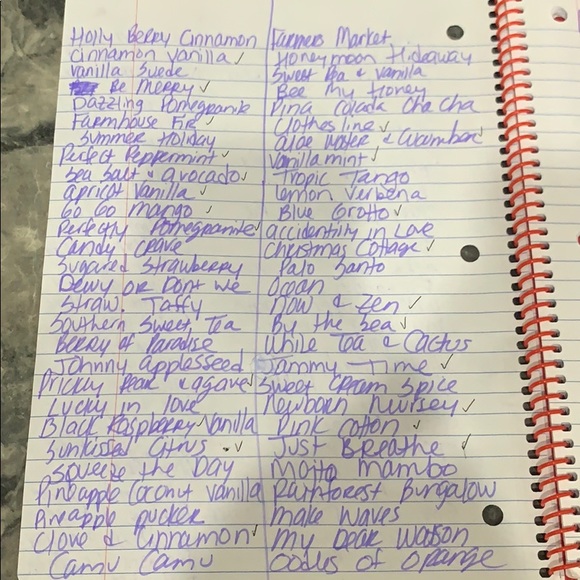 Holly Berry Cinnamon
Cinnamon Vanilla ✓
Vanilla Suede
Be Merry ✓
Dazzling Pomegranite
Farmhouse Fir ✓
Summer Holiday
Perfect Peppermint ✓
Sea Salt & Avocado ✓
Apricot Vanilla ✓
Go Go Mango ✓
Perfectly Pomegranite ✓
Candy Crave
Sugared Strawberry
Dewy or Dont We
Straw. Taffy
Southern Sweet Tea
Berry of Paradise
Johnny Appleseed
Prickly Pear & agave ✓
Lucky in love
Black Raspberry Vanilla
Sunkissed Citrus ✓
Squeeze the Day
Pineapple Coconut Vanilla
Pineapple pucker
Clove & Cinnamon ✓
Camu Camu
Farmers Market
Honeymoon Hideaway
Sweet Pea & Vanilla
Bee My Honey
Pina Colada Cha Cha
Clothes line ✓
aloe water & Cucumber
Vanilla mint ✓
Tropic Tango
Lemon Verbena
Blue Grotto ✓
accidentily in Love
Christmas Cottage ✓
Palo Santo
Ocean
Now & Zen ✓
By the Sea ✓
White Tea & Cactus
Jammy Time ✓
Sweet Cream Spice
Newborn Nursey ✓
Pink Cotton ✓
Just Breathe ✓
Mojito Mambo
Rainforest Bungalow
make waves
my Dear Watson
Oodles of Orange